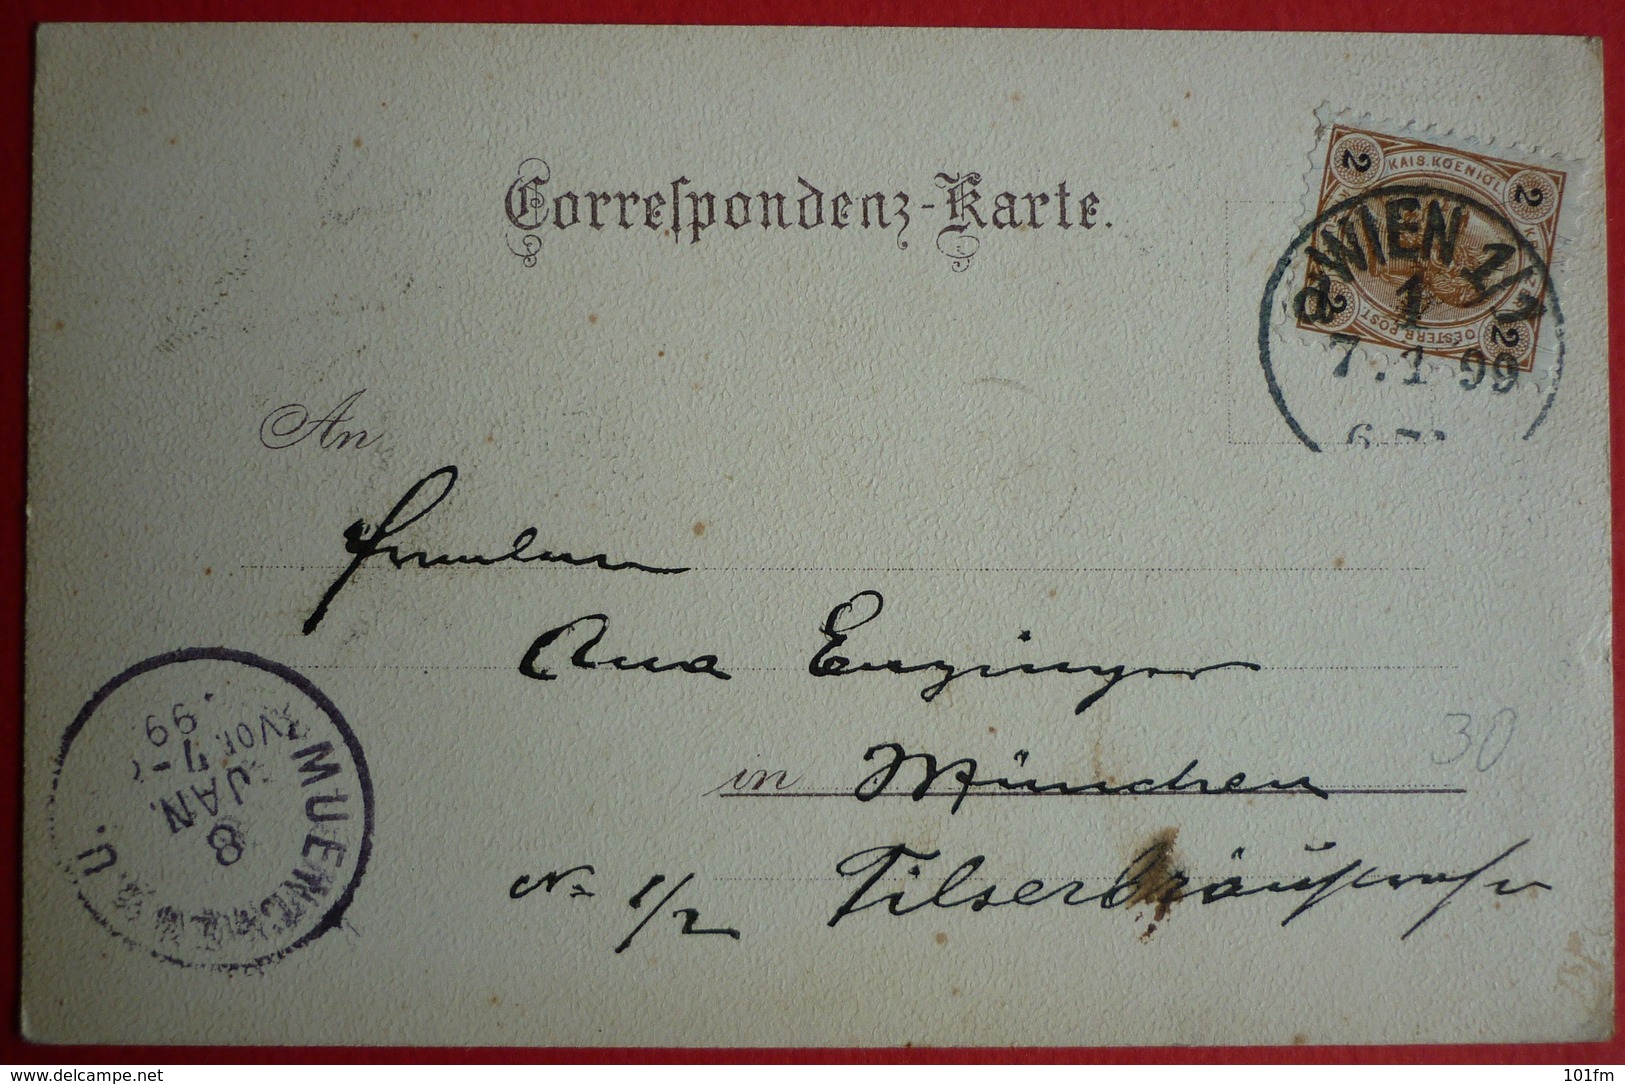 Correspondenz-Karte.
KAIS. KOENIGL.
OESTERR. POST
2
2
2
2
WIEN 1/1
1
7.1 99
An
Fräulein
Ana Enzinger
in München
No 1/2 Tilserbräustrasse
30
MUENCHEN. U.
8
JAN.
VOR. 7-
99
www.delcampe.net
101fm